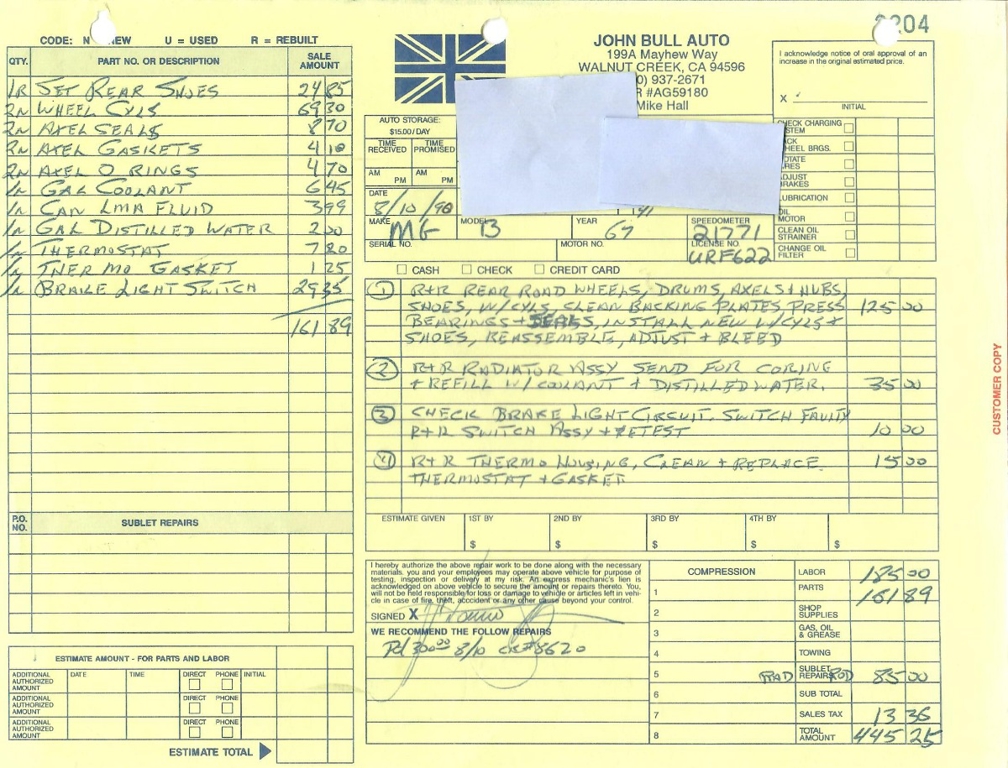 CODE: N NEW U = USED R = REBUILT
QTY. PART NO. OR DESCRIPTION SALE AMOUNT
1R SET REAR SHOES 24 85
2N WHEEL CYLS 69 30
2N AXEL SEALS 8 70
2N AXEL GASKETS 4 10
2N AXEL O RINGS 4 70
1N GAL COOLANT 6 45
1N CAN LMA FLUID 3 99
1N GAL DISTILLED WATER 2 00
1N THERMOSTAT 7 20
1N THERMO GASKET 1 25
1N BRAKE LIGHT SWITCH 29 35
161 89
P.O. NO. SUBLET REPAIRS
ESTIMATE AMOUNT - FOR PARTS AND LABOR
ADDITIONAL AUTHORIZED AMOUNT DATE TIME DIRECT PHONE INITIAL
ADDITIONAL AUTHORIZED AMOUNT DIRECT PHONE
ADDITIONAL AUTHORIZED AMOUNT DIRECT PHONE
ESTIMATE TOTAL
JOHN BULL AUTO
199A Mayhew Way
WALNUT CREEK, CA 94596
0) 937-2671
R #AG59180
Mike Hall
204
I acknowledge notice of oral approval of an
increase in the original estimated price.
X
INITIAL
AUTO STORAGE:
$15.00/DAY
TIME RECEIVED TIME PROMISED
AM PM AM PM
DATE
8/10/98
MAKE MG MODEL B YEAR 67 SPEEDOMETER 21771
SERIAL NO. MOTOR NO. LICENSE NO. URF622
CHECK CHARGING
STEM
CK
HEEL BRGS.
OTATE
RES
ADJUST
RAKES
UBRICATION
OIL
MOTOR
CLEAN OIL
STRAINER
CHANGE OIL
FILTER
CASH CHECK CREDIT CARD
1 R+R REAR ROAD WHEELS, DRUMS, AXELS + HUBS,
SHOES, W/CYLS, CLEAN BACKING PLATES, PRESS 125 00
BEARINGS + SEALS, INSTALL NEW W/CYLS +
SHOES, REASSEMBLE, ADJUST + BLEED
2 R+R RADIATOR ASSY SEND FOR CORING
+ REFILL W/ COOLANT + DISTILLED WATER. 35 00
3 CHECK BRAKE LIGHT CIRCUIT. SWITCH FAULTY
R+R SWITCH ASSY + RETEST 10 00
4 R+R THERMO HOUSING, CLEAN + REPLACE 15 00
THERMOSTAT + GASKET
ESTIMATE GIVEN 1ST BY 2ND BY 3RD BY 4TH BY
$ $ $ $
I hereby authorize the above repair work to be done along with the necessary
materials. you and your employees may operate above vehicle for purpose of
testing, inspection or delivery at my risk. An express mechanic's lien is
acknowledged on above vehicle to secure the amount or repairs thereto. You
will not be held responsible for loss or damage to vehicle or articles left in vehi-
cle in case of fire, theft, accident or any other cause beyond your control.
SIGNED X
WE RECOMMEND THE FOLLOW REPAIRS
Pd 300.00 8/10 ck# 8620
COMPRESSION
1
2
3
4
5
6
7
8
LABOR 185 00
PARTS 161 89
SHOP SUPPLIES
GAS, OIL & GREASE
TOWING
RAD SUBLET REPAIRS ROD 85 00
SUB TOTAL
SALES TAX 13 36
TOTAL AMOUNT 445 25
CUSTOMER COPY